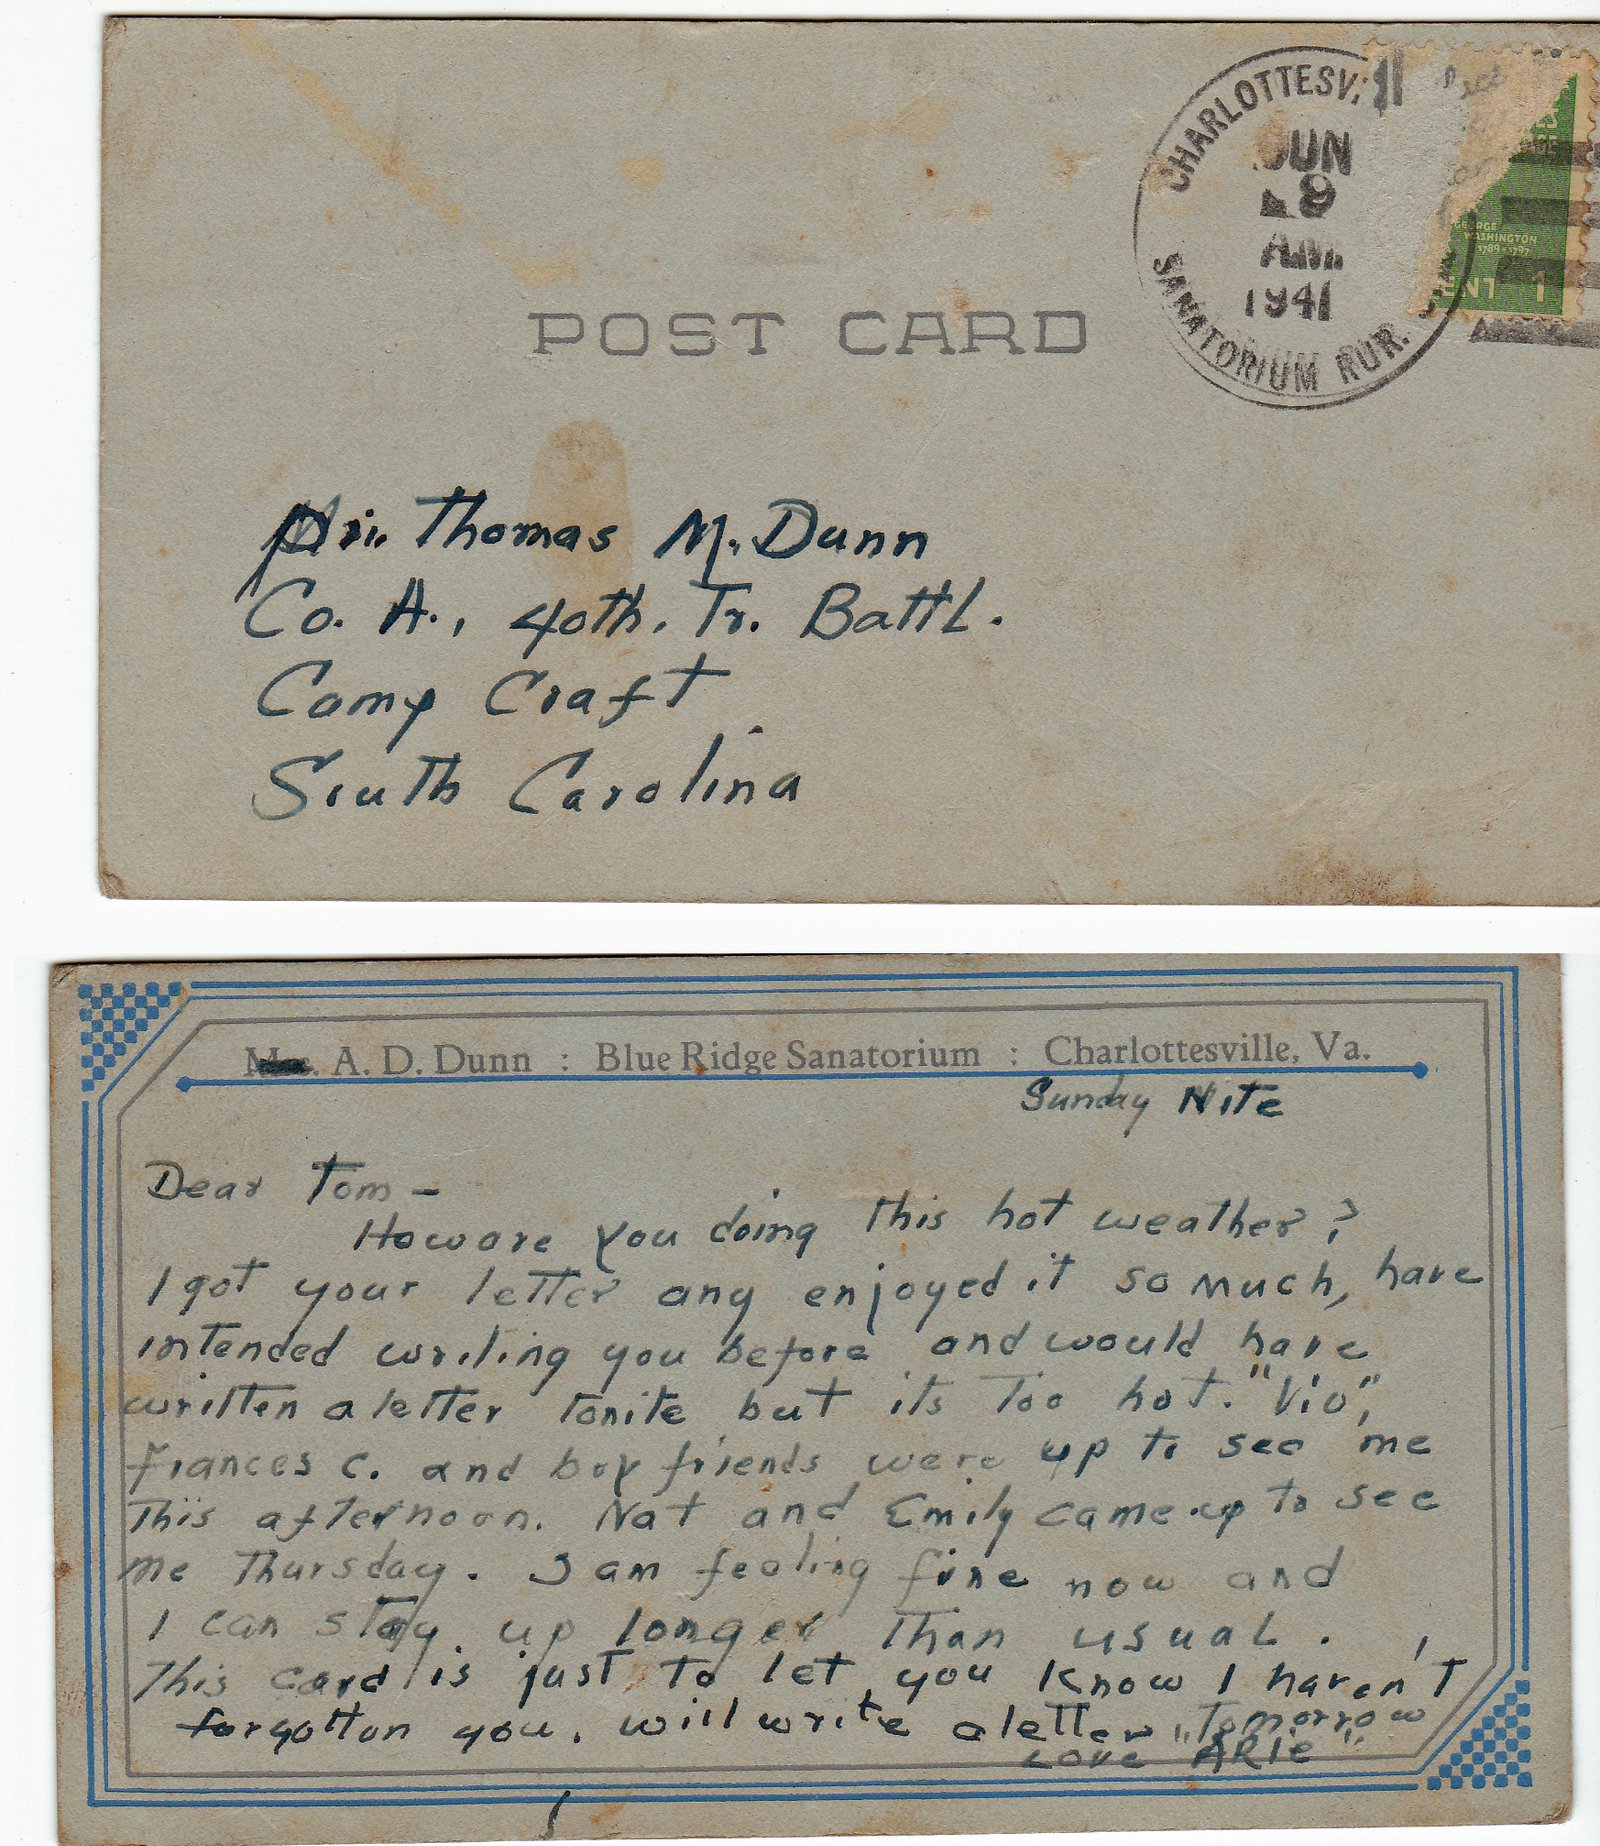 CHARLOTTESV
JUN
9
AM
1941
SANATORIUM RUR.
GEORGE
WASHINGTON
1789-1797
1
POST CARD
Pri. Thomas M. Dunn
Co. A., 40th. Tr. Battl.
Camp Craft
South Carolina
A. D. Dunn : Blue Ridge Sanatorium : Charlottesville, Va.
Sunday Nite
Dear Tom -
How are you doing this hot weather?
I got your letter any enjoyed it so much, have
intended writing you before and would have
written a letter tonite but its too hot. "Vio",
Frances C. and boy friends were up to see me
This afternoon. Nat and Emily came up to see
me Thursday. I am feeling fine now and
I can stay up longer than usual.
This card is just to let you know I haven't
forgotton you, will write a letter tomorrow
Love "ARIe"